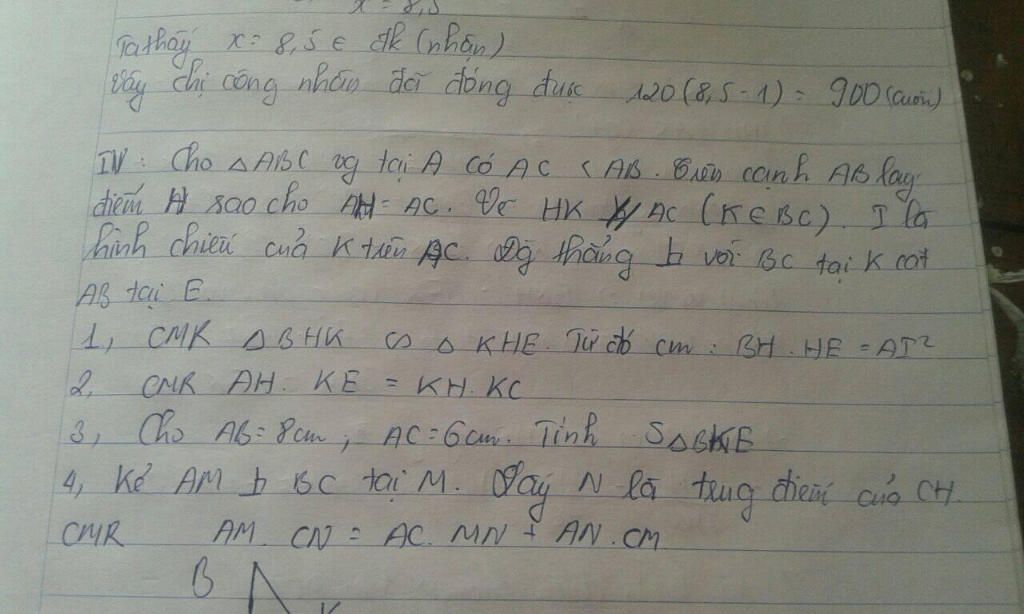 x = 8,5
Ta thấy x = 8,5 ∈ đk (nhận)
Vậy chị công nhân đã đóng được 120(8,5-1) = 900 (cuốn)
IV: Cho △ABC vg tại A có AC < AB. Trên cạnh AB lấy
điểm H sao cho AH = AC. Vẽ HK // AC (K∈BC). I là
hình chiếu của K trên AC. Đg thẳng ⊥ với BC tại K cắt
AB tại E.
1, CMR △BHK ∽ △KHE. Từ đó cm: BH.HE = AI²
2, CMR AH.KE = KH.KC
3, Cho AB = 8cm, AC = 6cm. Tính S△BKE
4, Kẻ AM ⊥ BC tại M. Lấy N là trug điểm của CH.
CMR AM.CN = AC.MN + AN.CM
B
K